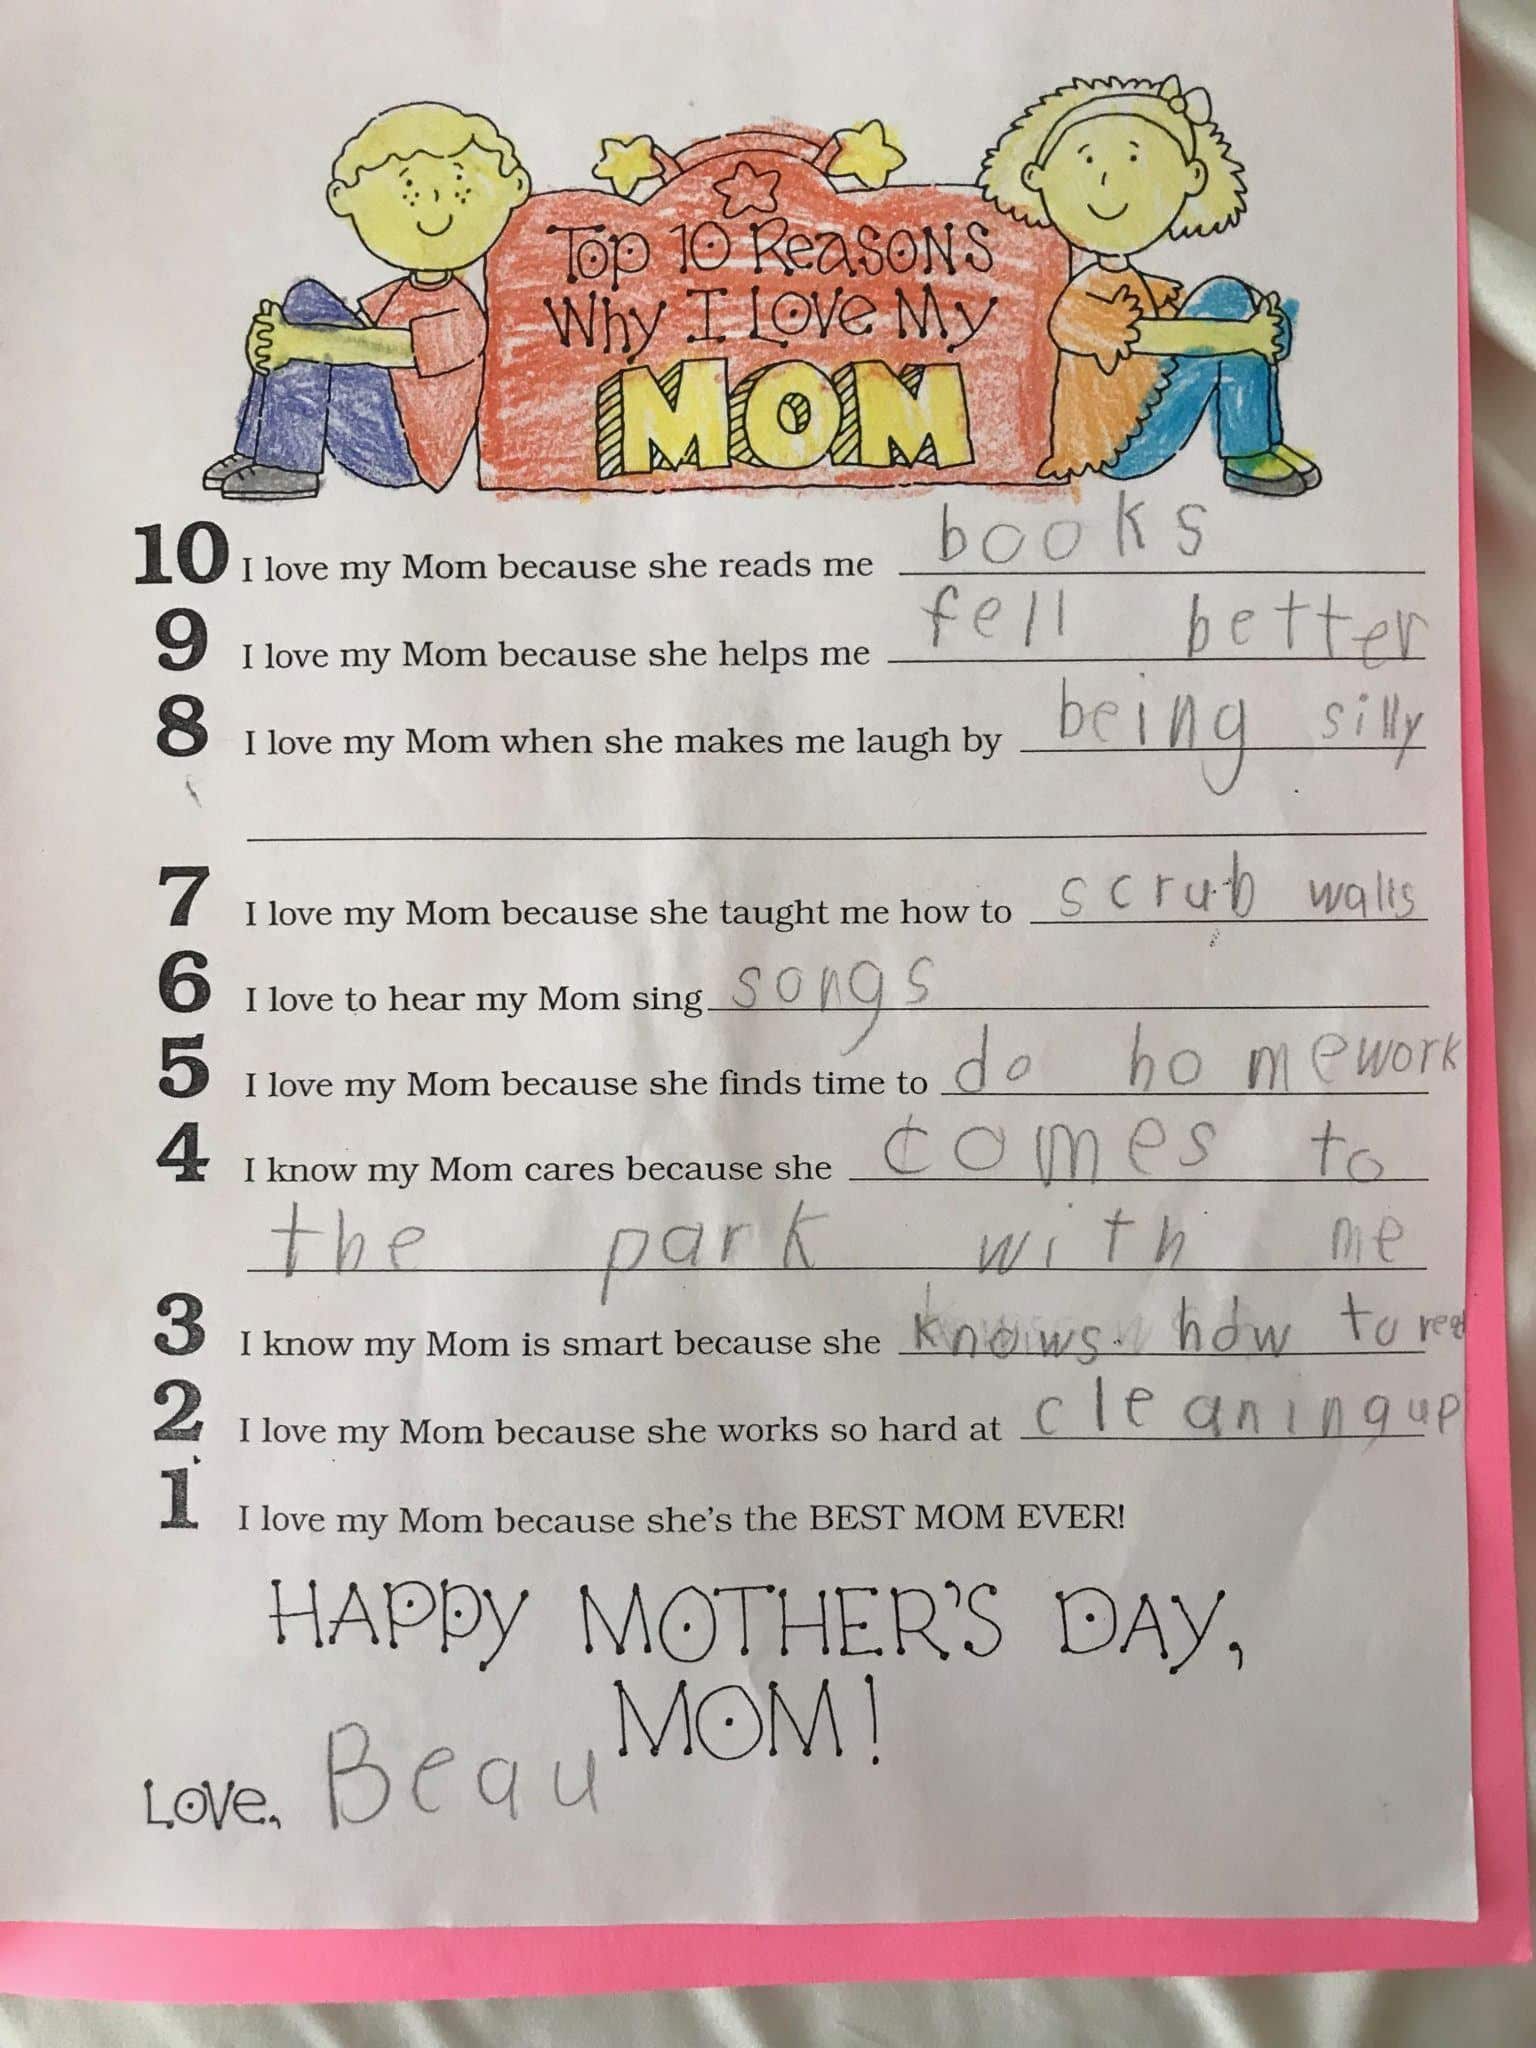 Top 10 Reasons
Why I Love My
MOM
10 I love my Mom because she reads me books
9 I love my Mom because she helps me fell better
8 I love my Mom when she makes me laugh by being silly
7 I love my Mom because she taught me how to scrub walls
6 I love to hear my Mom sing songs
5 I love my Mom because she finds time to do homework
4 I know my Mom cares because she comes to
the park with me
3 I know my Mom is smart because she knows how to
2 I love my Mom because she works so hard at cleaning up
1 I love my Mom because she's the BEST MOM EVER!
HAPPY MOTHER'S DAY,
MOM!
Love, Beau